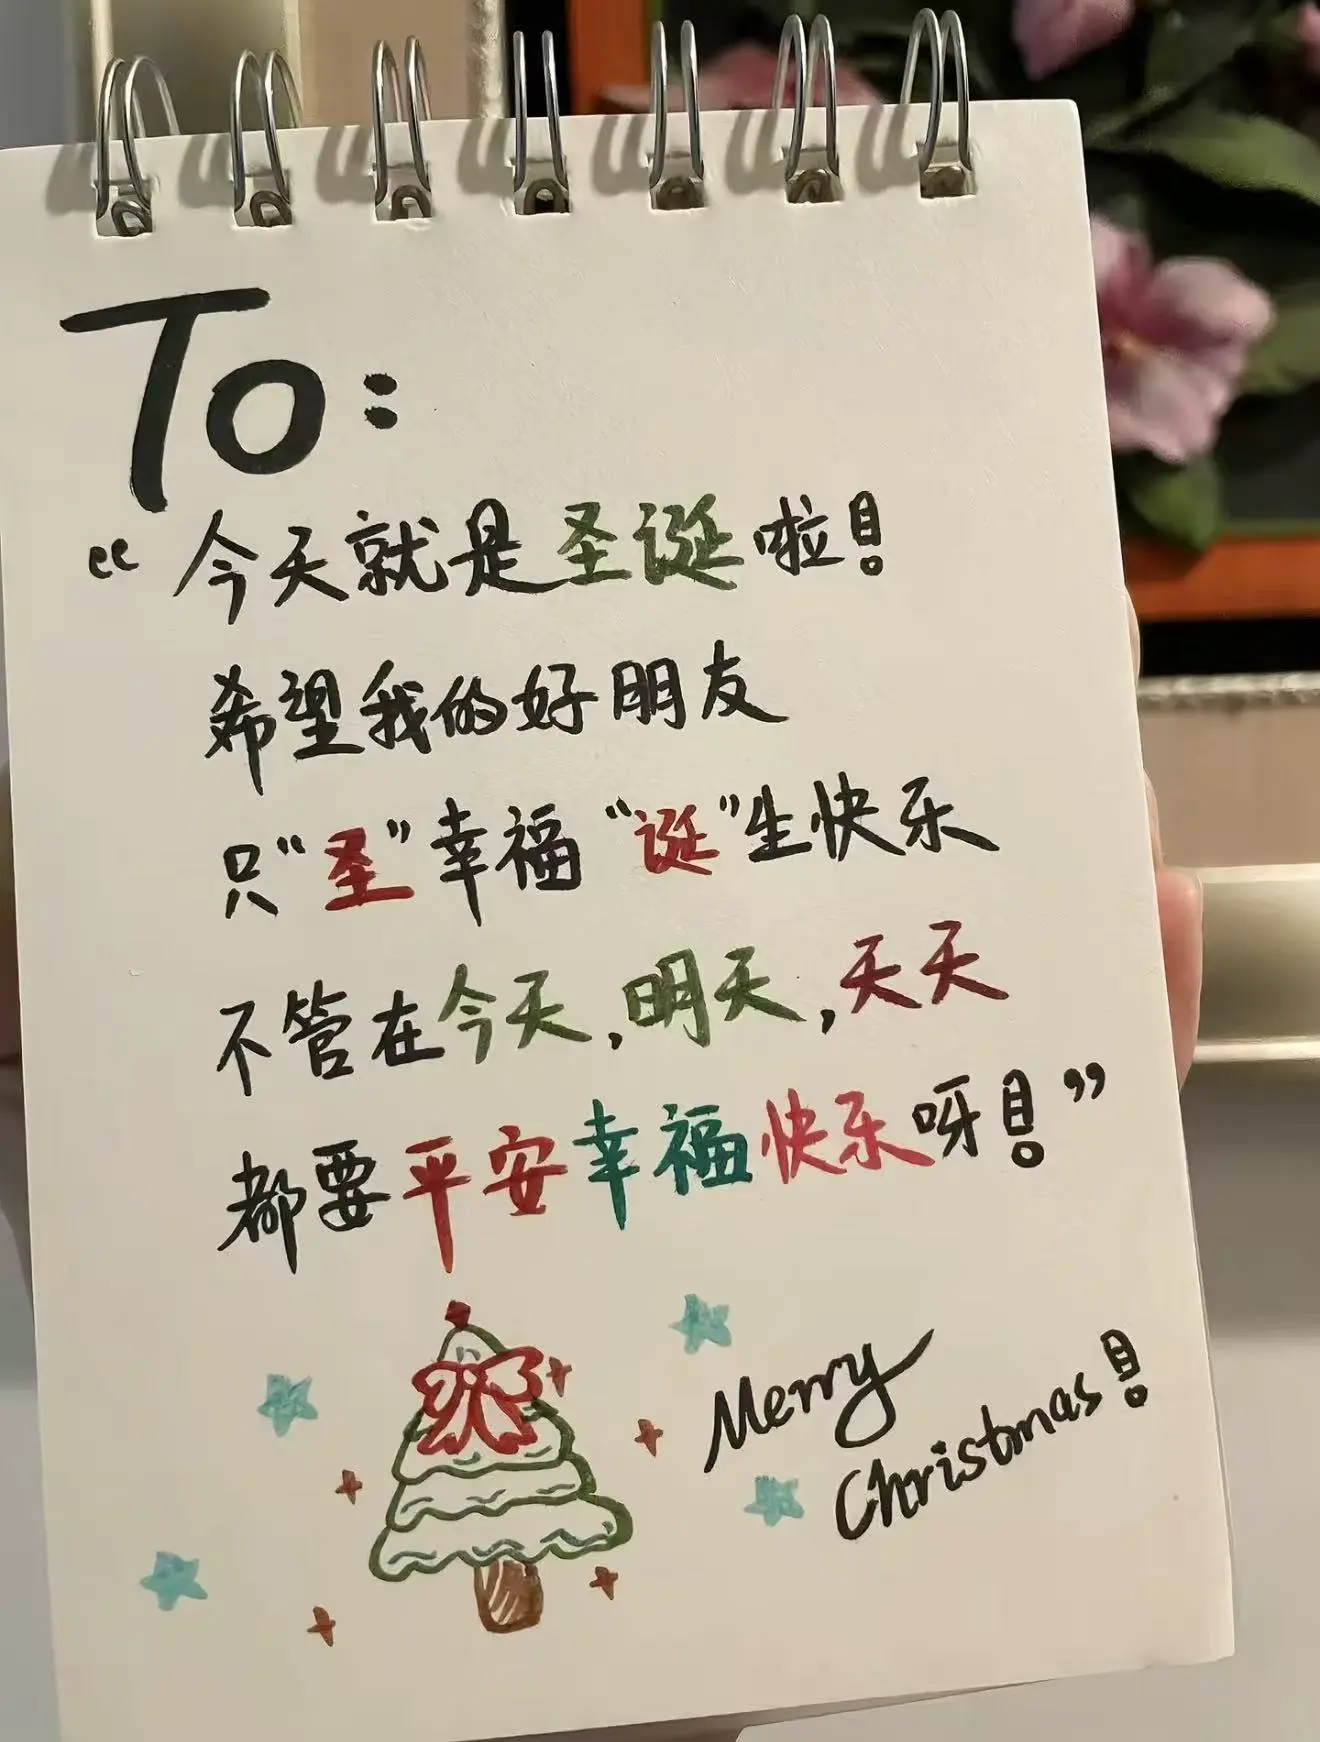 To:
“今天就是圣诞啦！
希望我的好朋友
只“圣”幸福“诞”生快乐
不管在今天，明天，天天
都要平安幸福快乐呀！”
Merry
Christmas！